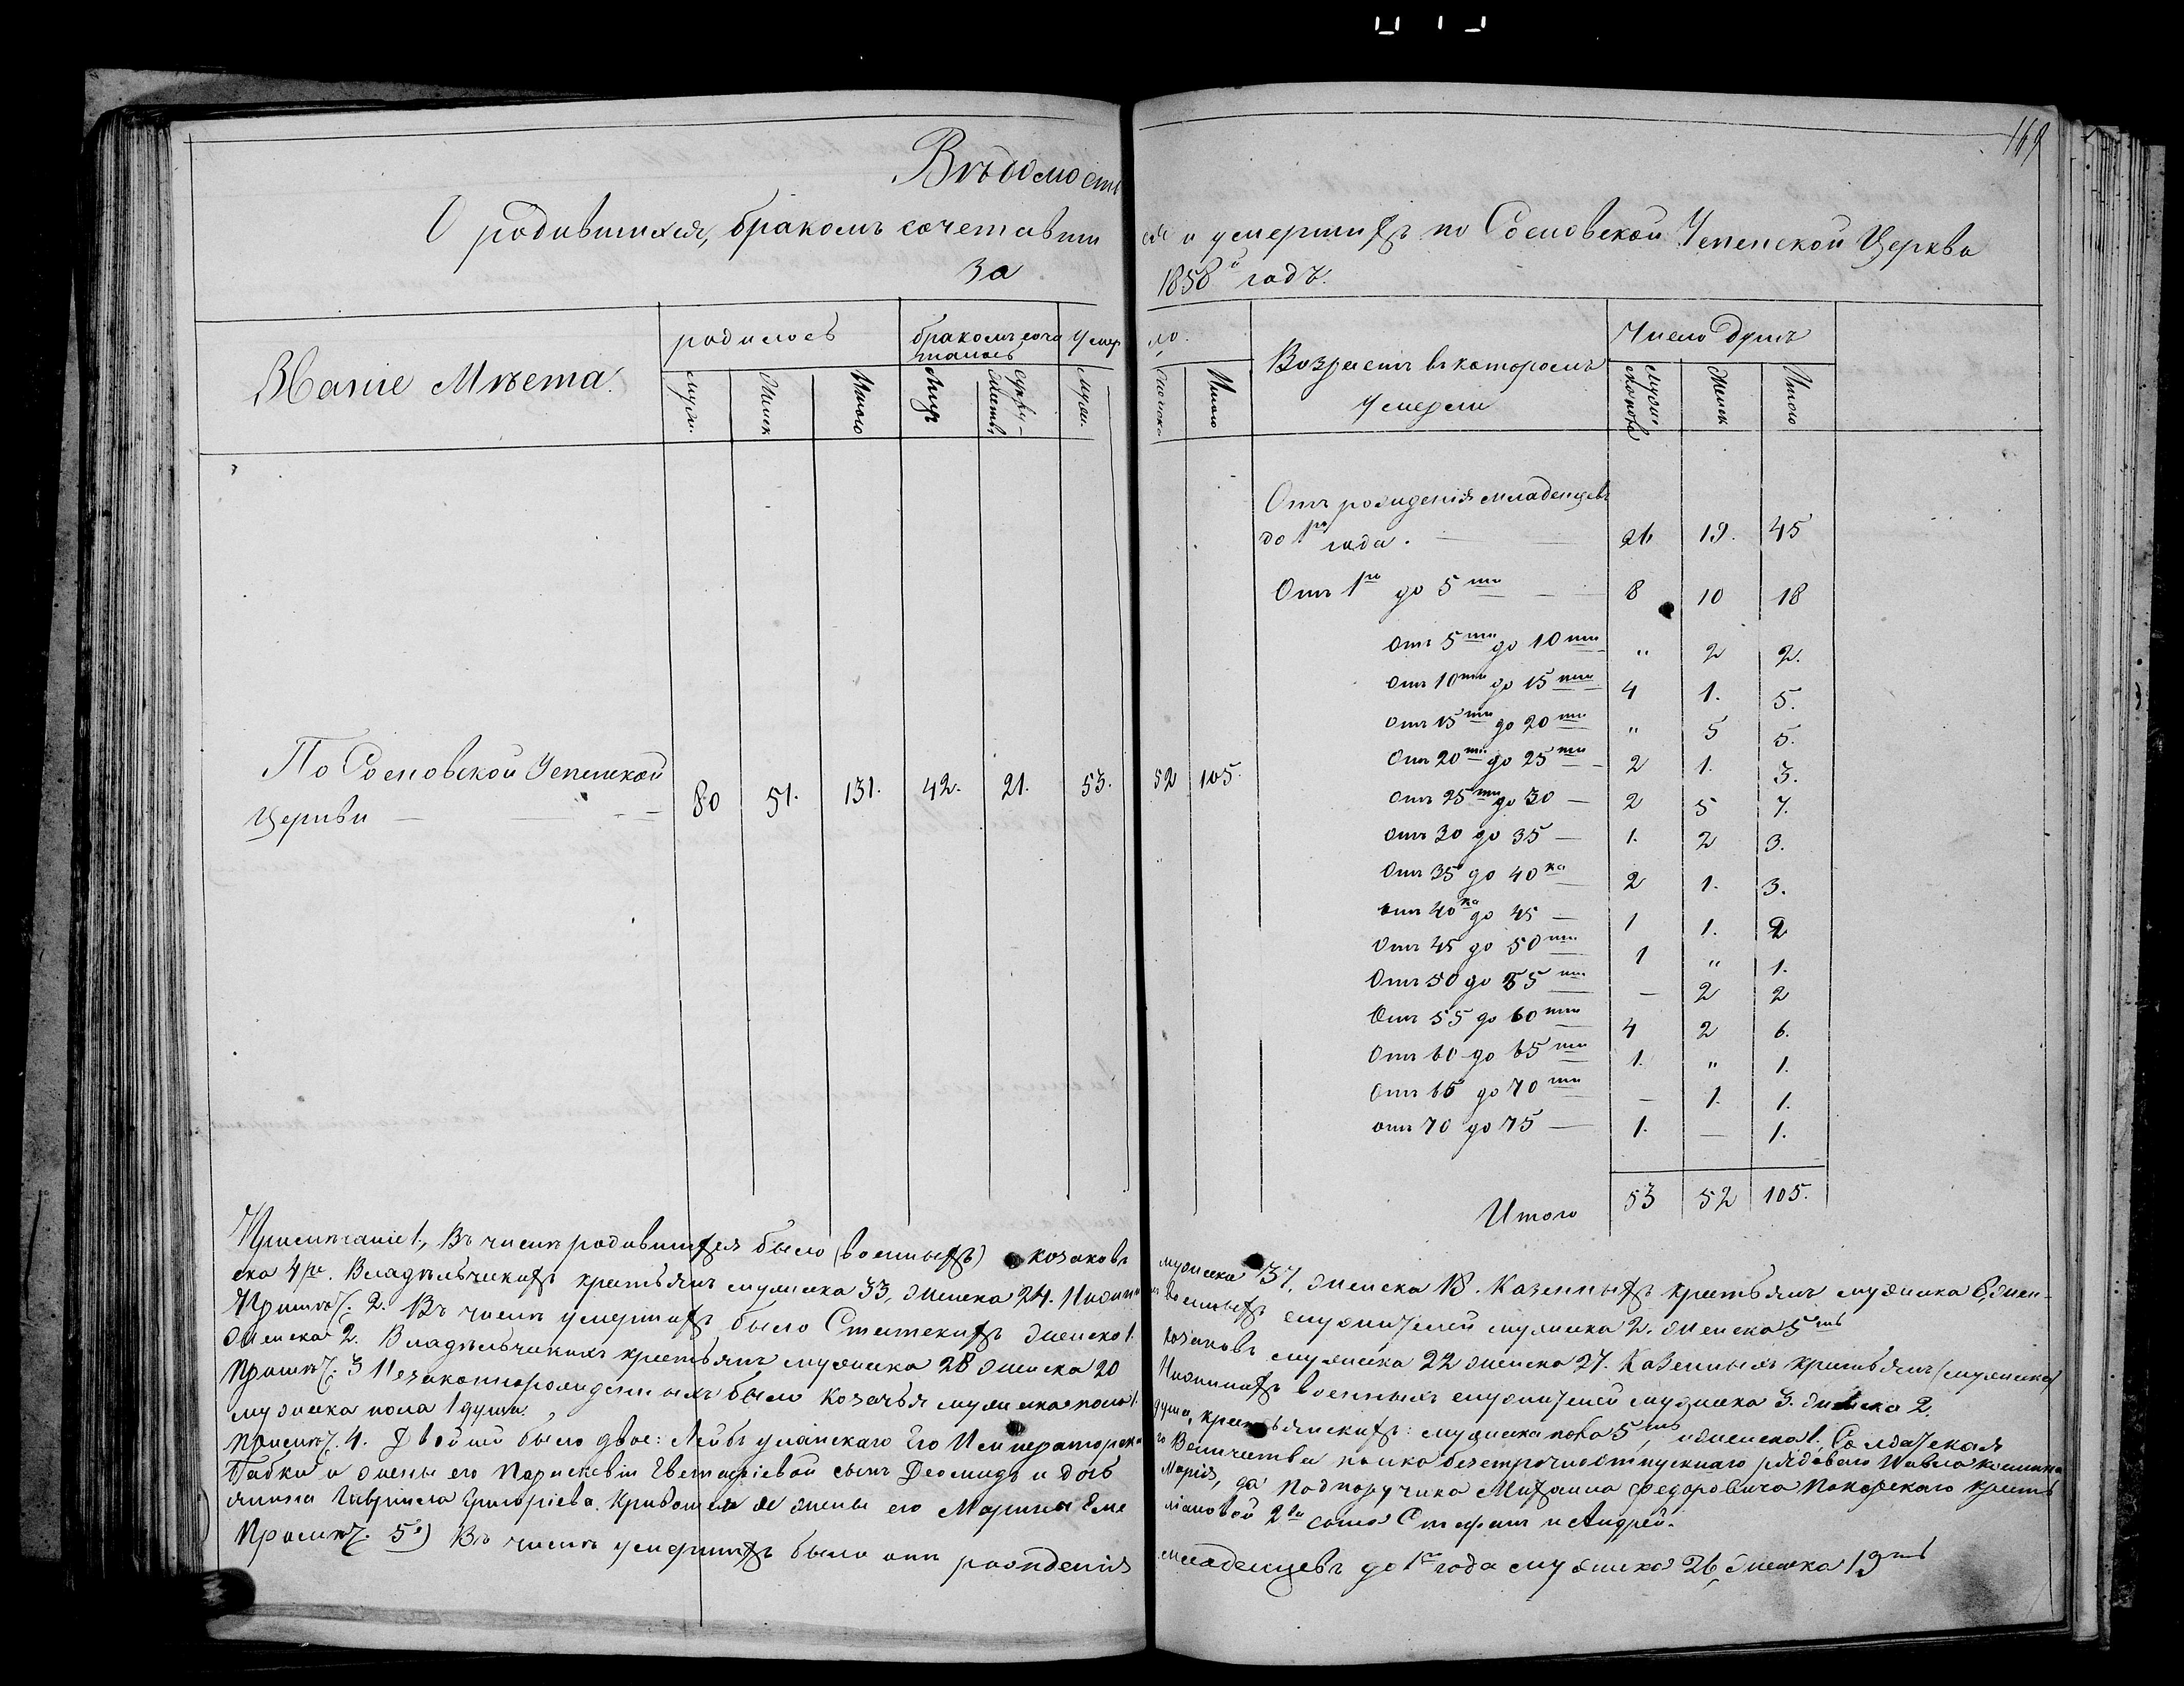 169
Вѣдомость
О родившихся, бракомъ сочетавши ся и умершихъ по Сосновской Успенской Церкви
За 1858й годъ.
Званіе Мѣста.
родилось
бракомъ соче
талось
Умер ло.
Возрастъ въ которомъ
Умерли
Число Душъ
Мужск.
Женск
Итого
Лицъ
Супру-
жествъ
Мужск.
Женска
Итого
Мужес
каго пола
Женск
Итого
Отъ рожденія младенцевъ
до 1го года. 26 19. 45
Отъ 1го до 5ти 8 10 18
Отъ 5ти до 10ти " 2 2.
Отъ 10ти до 15ти 4 1. 5.
Отъ 15ти до 20ти " 5 5.
Отъ 20ти до 25ти 2 1. 3.
По Сосновской Успенской
Церкви 80 51. 131. 42. 21. 53. 52 105.
Отъ 25ти до 30 2 5 7.
Отъ 30 до 35 1. 2 3.
Отъ 35 до 40ка 2 1. 3.
отъ 40ка до 45 1 1. 2
Отъ 45 до 50ти 1 " 1.
Отъ 50 до 55ти - 2 2
Отъ 55 до 60ти 4 2 6.
Отъ 60 до 65ти 1. " 1.
Отъ 65 до 70ти - 1. 1.
отъ 70 до 75 1. - 1.
Итого 53 52 105.
Примѣчаніе 1, Въ числѣ родившихся было (военныхъ) козаковъ мужеска 37, женска 18. Казенныхъ крестьянъ мужеска 6, жен-
ска 4ре. Владѣльческихъ крестьянъ мужеска 33, женска 24. Нижни военныхъ служителей мужеска 2. женска 5ть
Примѣч. 2. Въ числѣ умершихъ было Статскихъ женска 1. козаковъ мужеска 22 женска 27. Казенныхъ крестьянъ (мужеска)
женска 2. Владѣльческихъ крестьянъ мужеска 28 женска 20 Нижнихъ военныхъ служителей мужеска 3. женска 2.
Примѣч. 3 Незаконнорожденныхъ было Козачья мужеска пола 1. душа, крестьянскихъ: мужеска пола 5ть, женска 1, Солдатская
мужеска пола 1 душа.
Примѣч. 4. Двойней было двое: Лейбъ уланскаго Его Императорска го Величества полка безсрочноотпускнаго рядоваго
Бабки и жены его Параскевіи сынъ Деомидъ и дочь Марія, да Подпоручика Михаила Федоровича крестья
янина Гавріила Григоріева. и жены его Марины Еме ліановой 2ва сына Стефанъ и Андрей.
Примѣч. 5е) Въ числѣ умершихъ было отъ рожденія младенцевъ до 1го года мужеска 26, женска 19ть